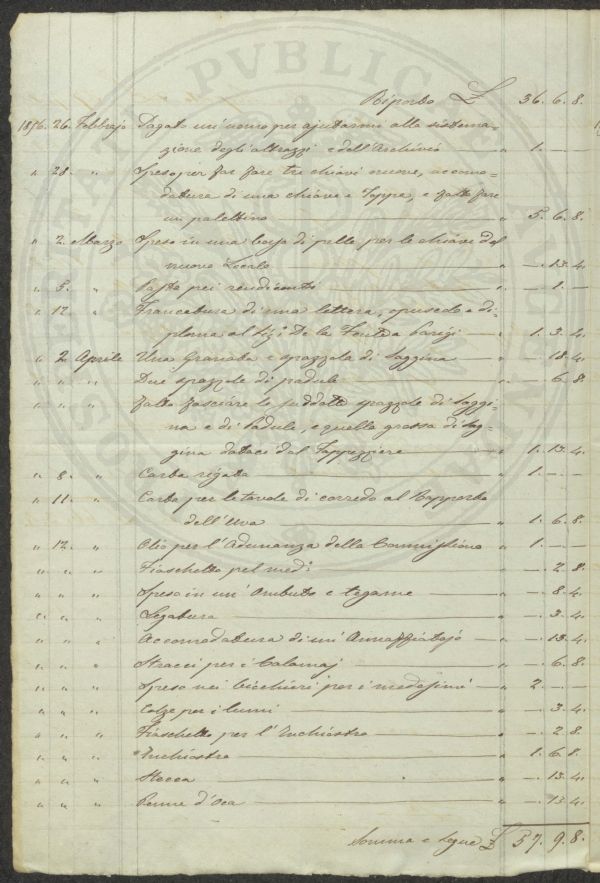 Riporto £ 36. 6. 8.
1856. 26. Febbrajo Pagato un'uomo per ajutarmi alla sistema-
zione degli attrazzi e dell'Archivio " 1. — —
" 28. " Spesa per far fare tre chiavi nuove, accomo-
datura di una chiave e Toppa, e fatto fare
un palettino " 5. 6. 8.
" 2. Marzo Speso in una borsa di pelle per le chiavi del
nuovo Locale " —. 13. 4.
" 5. " " 1. —
" 12. " Francatura di una lettera, opuscolo e di-
ploma al Sig.r De la Parigi " 1. 3. 4.
" 2. Aprile Una Granata e spazzola di Saggina " —. 18. 4.
" " " Due spazzole di padule " —. 6. 8.
" " " Fatto fasciare le suddette spazzole di Saggi-
na e di Padule, e quella grossa di Sag-
gina dal Tappezziere " 1. 13. 4.
" 8. " Carta rigata " 1. — —
" 11. " Carta per le tavole di corredo al Rapporto
dell'Uva " 1. 6. 8.
" 12. " Olio per l'Adunanza della Commissione " 1. — —
" " " Fiaschetto pel med.o " —. 2. 8.
" " " Speso in un'Imbuto e tegame " —. 8. 4.
" " " Legatura " —. 3. 4.
" " " Accomodatura di un'Annaffiatojo " —. 13. 4.
" " " Stracci per i Calamaj " —. 6. 8.
" " " Speso nei bicchieri per i medesimi " 2. — —
" " " Calze per i lumi " —. 3. 4.
" " " Fiaschetto per l'Inchiostro " —. 2. 8.
" " " Inchiostro " 1. 6. 8.
" " " Stecca " —. 13. 4.
" " " Penne d'Oca " —. 13. 4.
Somma e segue £ 57. 9. 8.